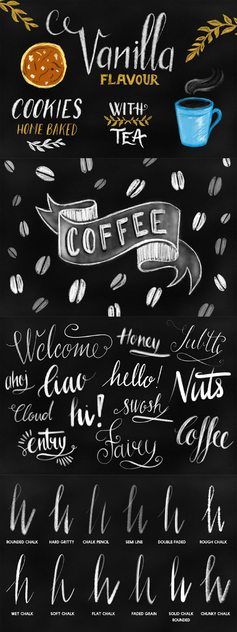 Vanilla
FLAVOUR
COOKIES
HOME BAKED
WITH
TEA
COFFEE
Welcome
Honey
Subtle
ahoj
Ciao
hello!
Nuts
Cloud
hi!
swosh
entry
Fairy
Coffee
h h h h h h
ROUNDED CHALK HARD GRITTY CHALK PENCIL SEMI LINE DOUBLE FADED ROUGH CHALK
h h h h h h
WET CHALK SOFT CHALK FLAT CHALK FADED GRAIN SOLID CHALK ROUNDED CHUNKY CHALK